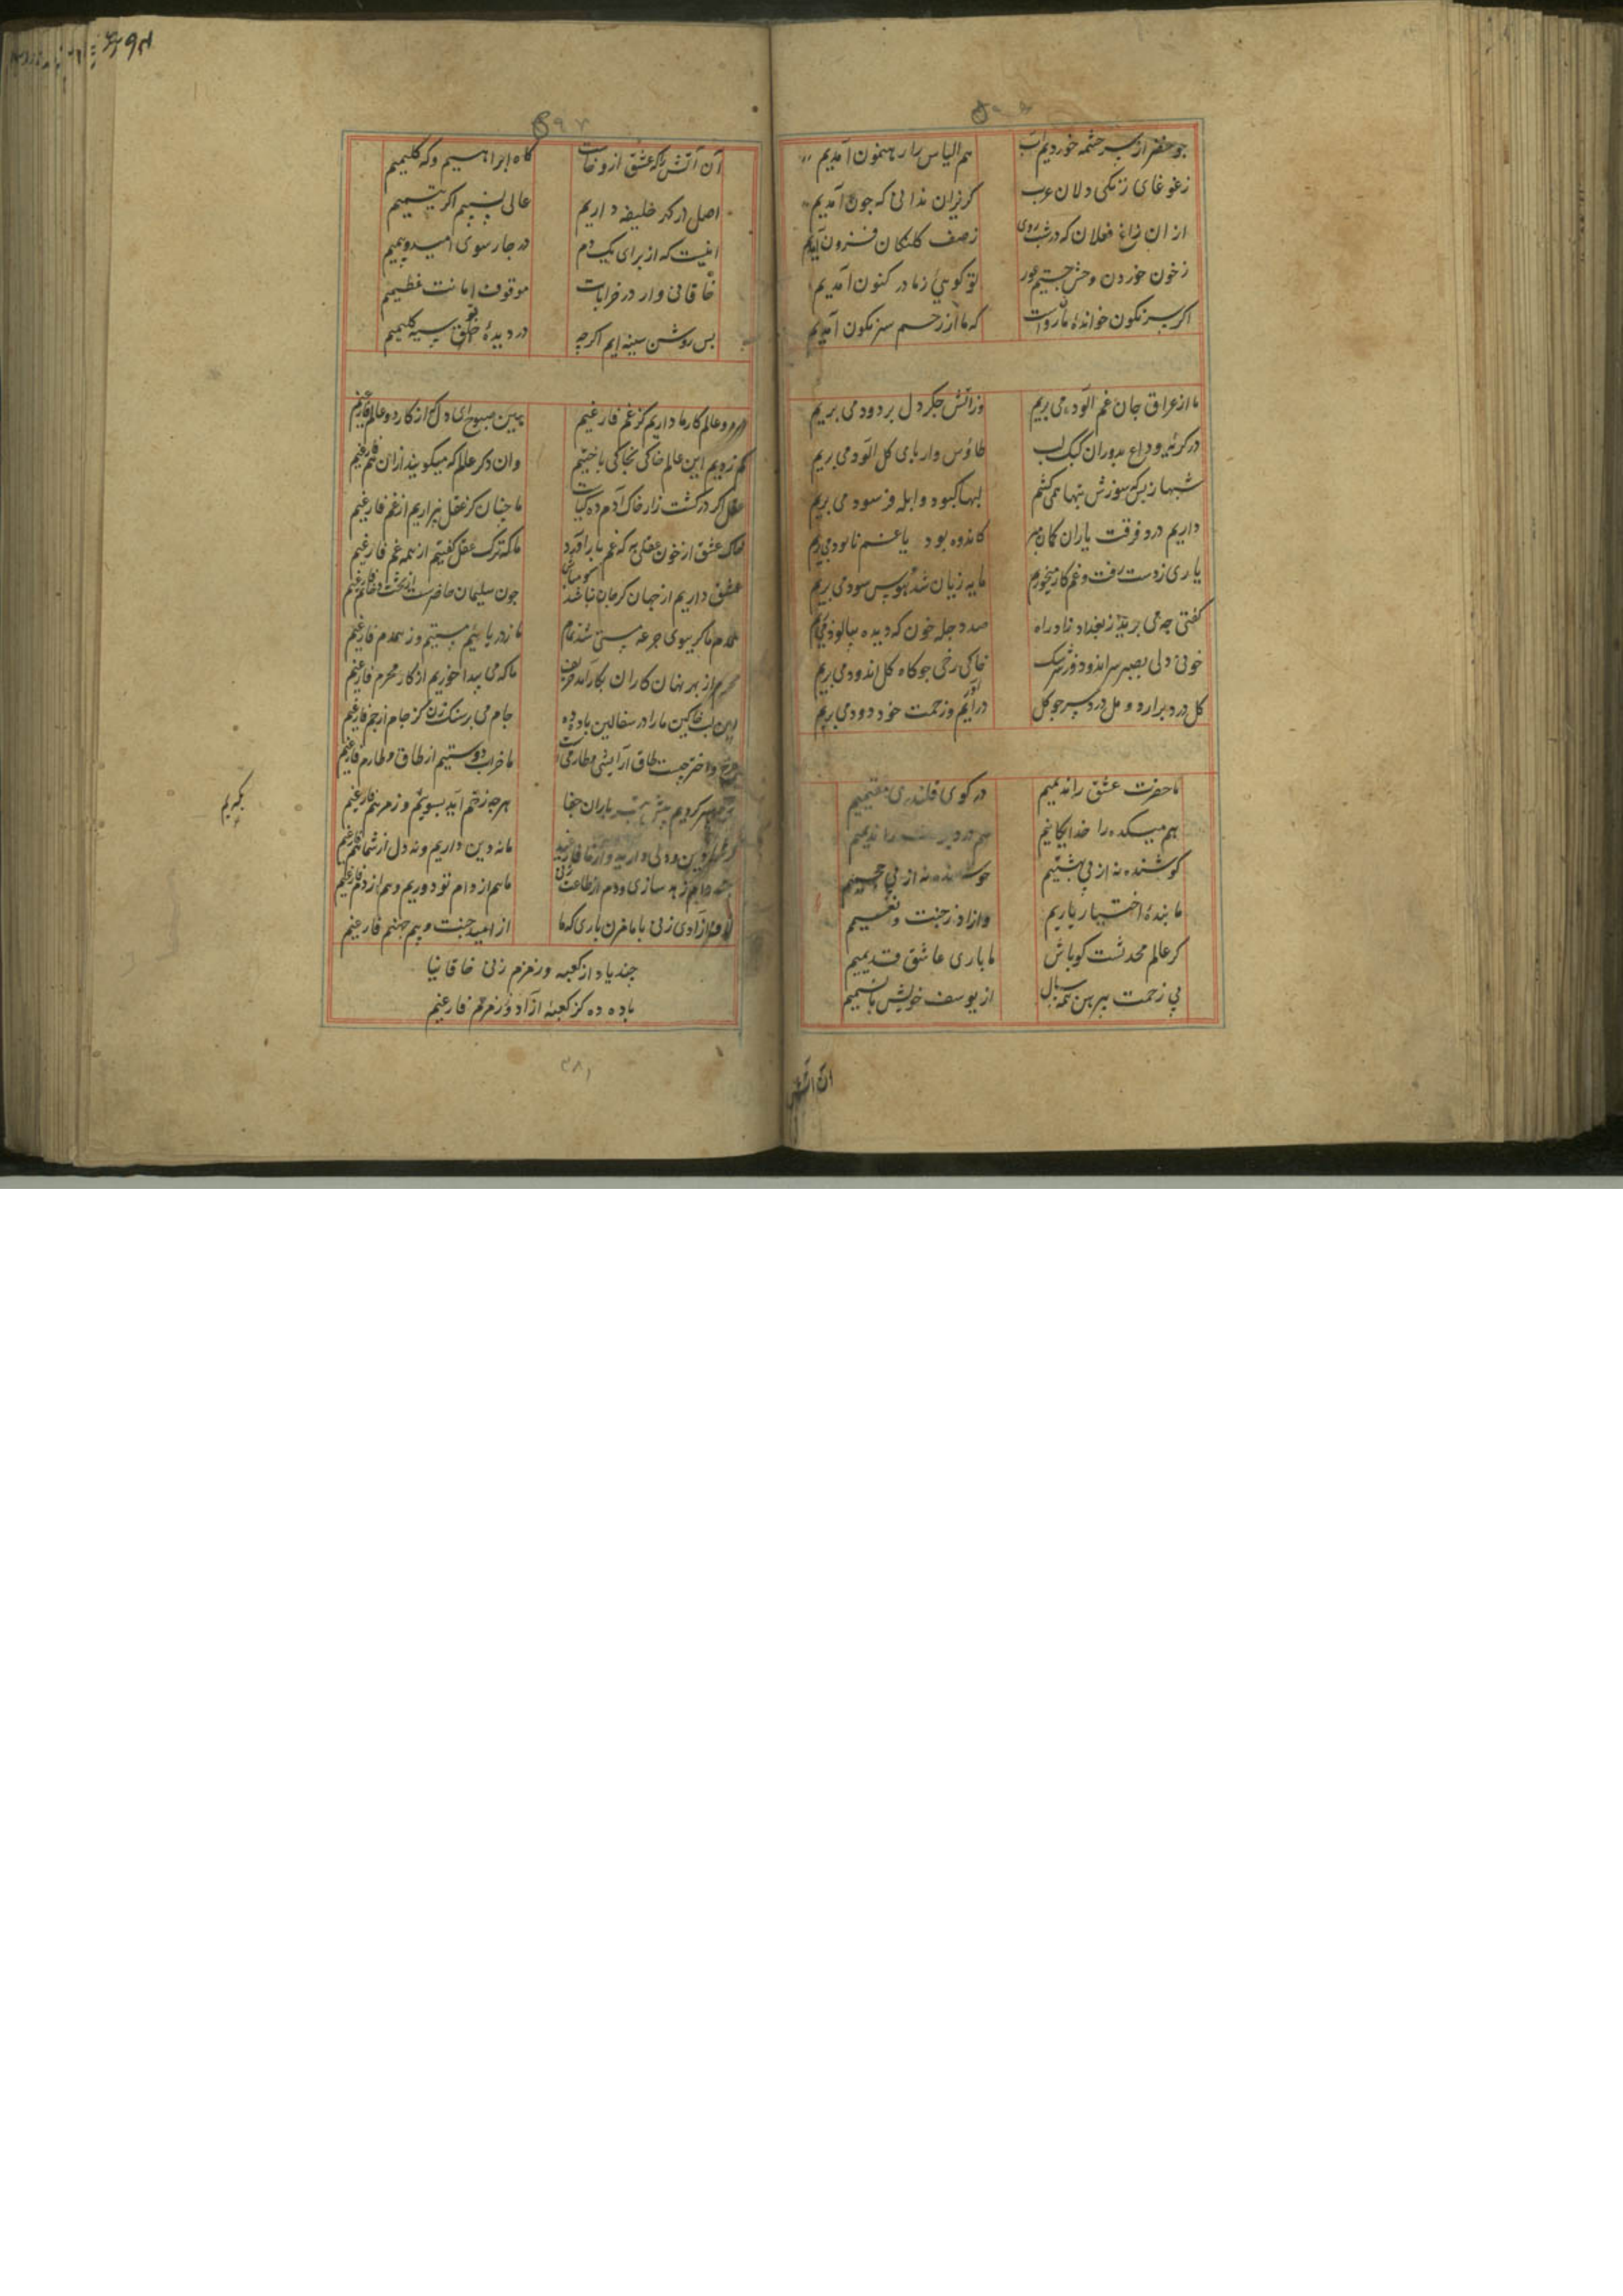 چو خضر از سر چشمه خوردیم آب هم الیاس را رهنمون آمدیم
زغوغای زنکی دلان عرب کریزان ندانی که چون آمدیم
از ان زاغ فعلان که در شب روی زصف کلنکان فزون آمدیم
زخون خوردن وحش جستیم دور تو کویی ز مادر کنون آمدیم
اکر سرنکون خوانده مان رواست که ما از رحم سرنکون آمدیم
ما از عراق جان غم آلود می بریم وز آتش جکر دل پر دود می بریم
در کریه وداع بدوران کبک لب طاؤس وار پای کل الود می بریم
شبها ز بس که سوزش تبها همی کشیم لبها کبود و ابله فرسود می بریم
داریم درد فرقت یاران کمان مبر کاندوه بود یا غم نابود می بریم
یاری زدست رفت و غم کار میخوریم مایه زیان شد هوس سود می بریم
کفتی چه می برید ز بغداد زاد راه صد دجله خون که دیده بپالود می بریم
خونی دلی بصبر سراندود وز سرشک خاکی رخی چو کاه کل اندود می بریم
کل درد سر برارد و مل درد سر چو کل در آیم وزحمت خود زود می بریم
ما حضرت عشق را ندیمیم در کوی قلندری مقیمیم
هم میکده را خدایکانیم هم درد پرست را ندیمیم
کوشنده نه از پی بهشتیم جوشنده نه از پی جحیمیم
ما بندهٔ اختیار یاریم وازاد زجنت و نعیمیم
کر عالم محدثست کو باش ما باری عاشق قدیمیم
بی زحمت پیرهن همه سال از یوسف خویش با نسیمیم
ان اتش
آن آتش را که عشق ازو خاست کاه ابراهیم و که کلیمیم
اصل در کهر خلیفه داریم عالی نسبیم اکر یتیمیم
انیست که از برای یک دم در چار سوی امید و بیمیم
خاقانی وار در خرابات موقوف امانت عظیمیم
بس روشن سینه ایم اکرچه در دیدهٔ خلق سیه کلیمیم
در دو عالم کار ما داریم کز غم فارغیم پیش صبوح ای دل از کار دو عالم فارغیم
کم زدیم این عالم خاکی بخاکی باختیم وان دکر عالم که میکویند از ان هم فارغیم
عقل اکر در کشت زار خاک آدم ده کیاست ما چنان کز عقل بیزاریم از غم فارغیم
خاک عشق از خون عقلی به که غم بار آورد ما که ترک عقل کفتیم از همه غم فارغیم
عشق داریم از جهان کر جان نباشد کو مباش چون سلیمان حاضرست از تخت و خاتم فارغیم
همدم ما کر ببوی جرعه مستی شد تمام ما زدریا نیم مستیم وز همدم فارغیم
محرم از بهر نهان کاران بکار آمد حریف ما که می پیدا خوریم از کار محرم فارغیم
این لب خاکین ما را در سفالین باده ده جام می بر سنک زن کز جام از جم فارغیم
چرخ و اختر چیست طاق آرایشی و طارمی ما خراب دوستیم از طاق و طارم فارغیم
جان سپر کردیم پیش تیر باران جفا هرچه زخم آید ببوسیم و ز مرهم فارغیم
کر شما دین و دلی دارید و از ما فارغید ما نه دین داریم و نه دل از شما هم فارغیم
چند دام زهد سازی و دم از طاعت زنی ما هم از دام تو دوریم و هم از دم فارغیم
لاف ازادی زنی با ما مزن باری که ما از امید جنت و بیم جهنم فارغیم
چند یاد از کعبه وزمزم زنی خاقانیا
باده ده کز کعبه ازاد و ز زمزم فارغیم
۳۸۱